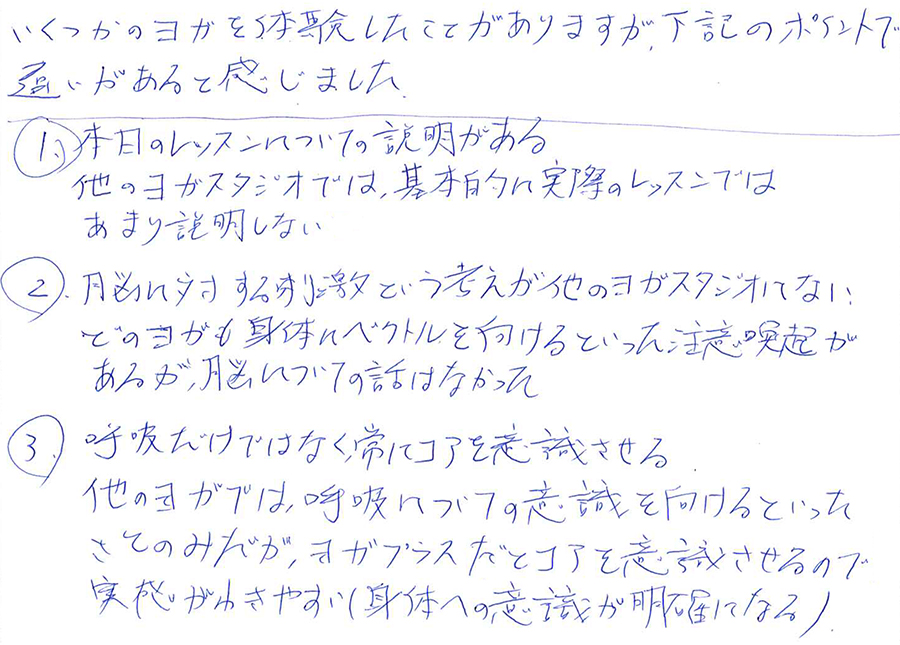 いくつかのヨガを体験したことがありますが、下記のポイントで
違いがあると感じました
1、本日のレッスンについての説明がある
他のヨガスタジオでは、基本的に実際のレッスンでは
あまり説明しない
2、脳に対する刺激という考えが他のヨガスタジオにてない
どのヨガも身体にベクトルを向けるといった注意喚起が
あるが、脳についての話はなかった
3、呼吸だけではなく、常にコアを意識させる
他のヨガでは、呼吸についての意識を向けるといった
ことのみだが、ヨガプラスだとコアを意識させるので
実感がわきやすい(身体への意識が明確になる)